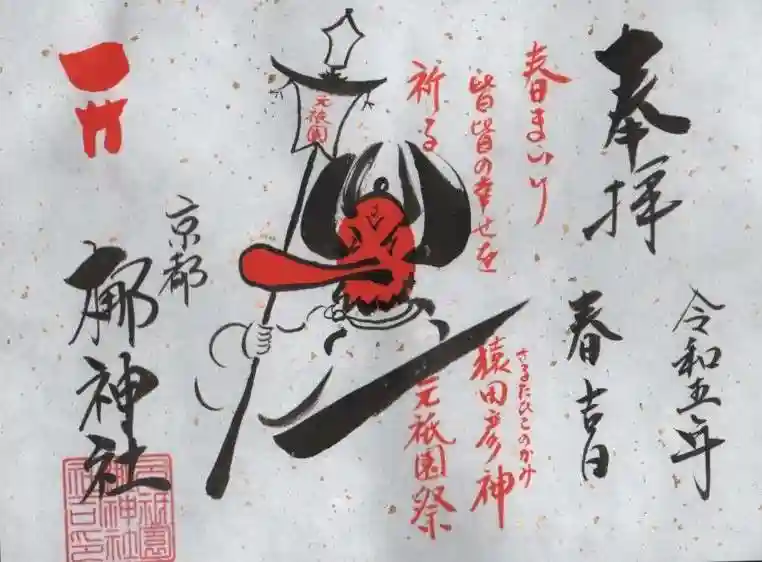 奉拝
令和五年
春吉日
春まいり
皆皆の幸せを
祈る
猿田彦神
さるたひこのかみ
元祇園祭
元祇園
京都
梛神社
元祇園
梛神社